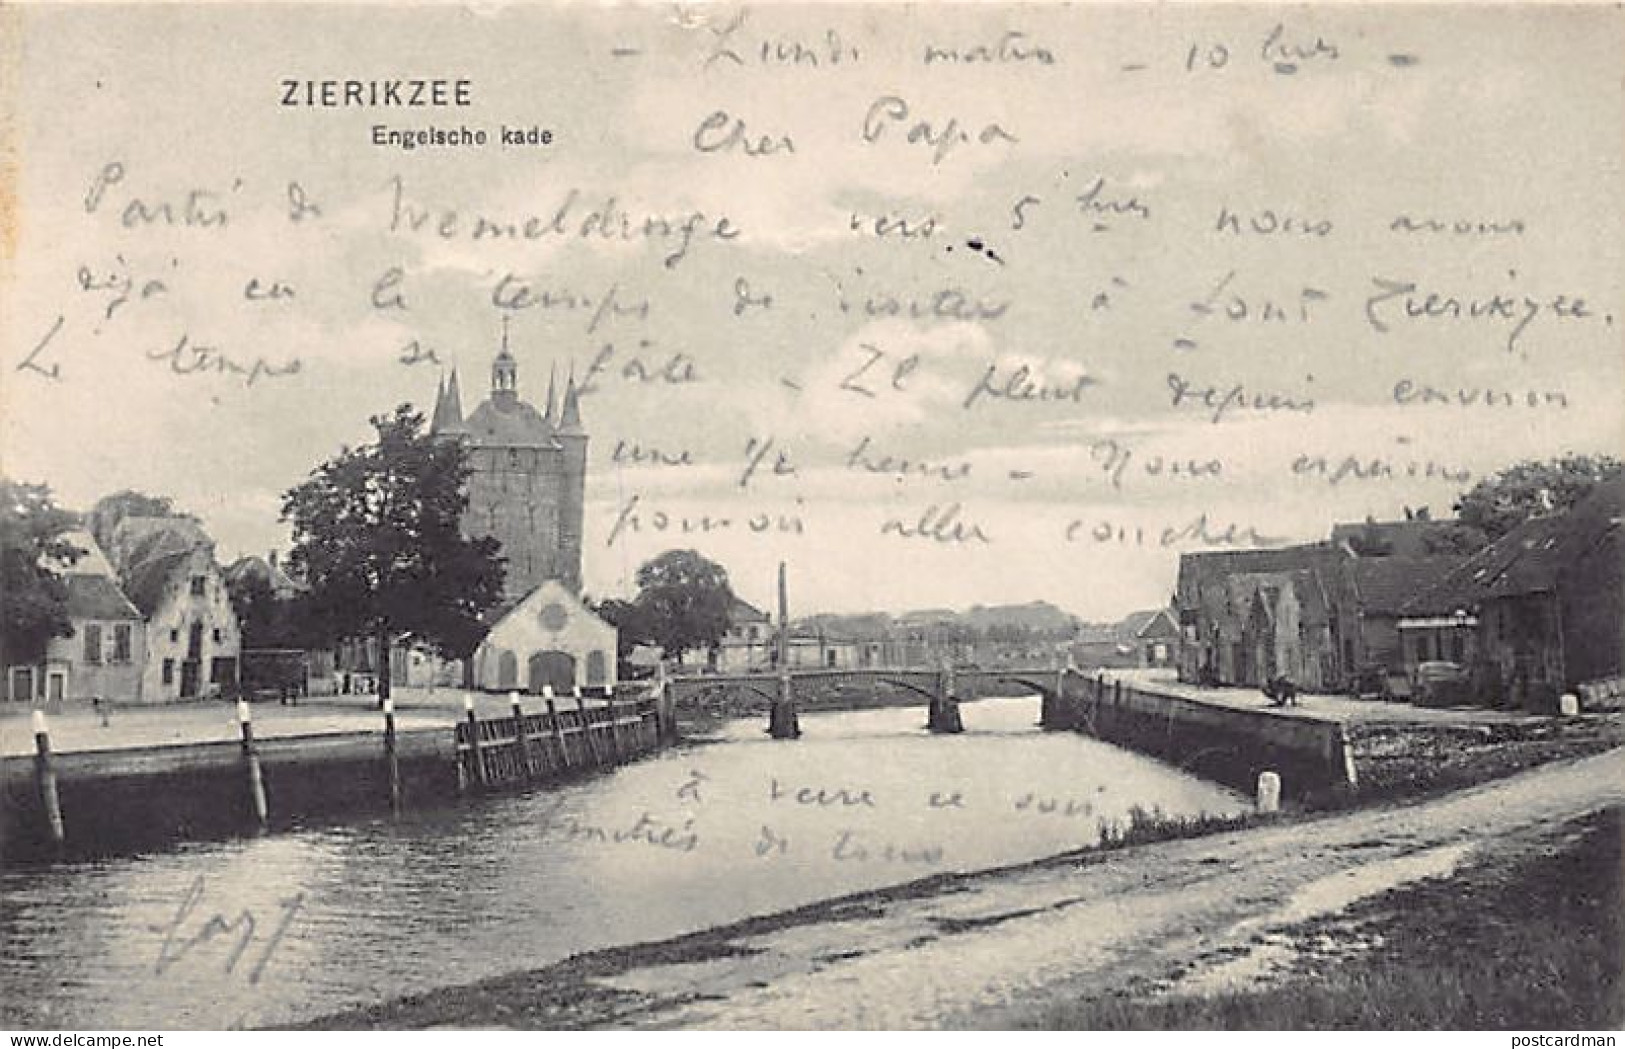 - Lundi matin - 10 hres -
ZIERIKZEE
Engelsche kade
Cher Papa
Partis de Wemeldinge vers 5 hres nous avons
déjà eu le temps de visiter à fond Zierikzee.
Le temps se gâte - Il pleut depuis environ
une 1/2 heure - Nous espérons
pouvoir aller coucher
à veere ce soir
Amitiés de tous
www.delcampe.net
postcardman